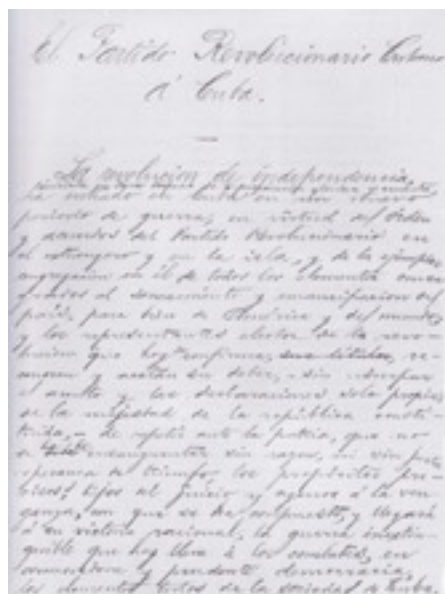 El Partido Revolucionario Cubano
á Cuba.
La revolucion de independencia,
ha entrado en Cuba en un nuevo
período de guerra, en virtud del órden
y acuerdos del Partido Revolucionario en
el extranjero y en la isla, y de la ejemplar
congregacion en él de todos los elementos consa
grados al saneamiento y emancipacion del
país, para bien de América y del mundo;
y los representantes electos de la revo-
lucion que hoy confirma, re
y acatan su deber, - sin usurpar
el acento y las declaraciones solo propias
de la majestad de la república consti
tuida, - de repetir ante la patria, que no
se ensangrentar sin razon, ni sin justa
esperanza de triunfo, los propósitos pre-
cisos, hijos del juicio y agenos á la ven
ganza, con que se ha compuesto, y llegará
á su victoria racional, la guerra inextin-
guible que hoy lleva á los combates, en
conmovedora y prudente democracia,
los elementos todos de la sociedad de Cuba.